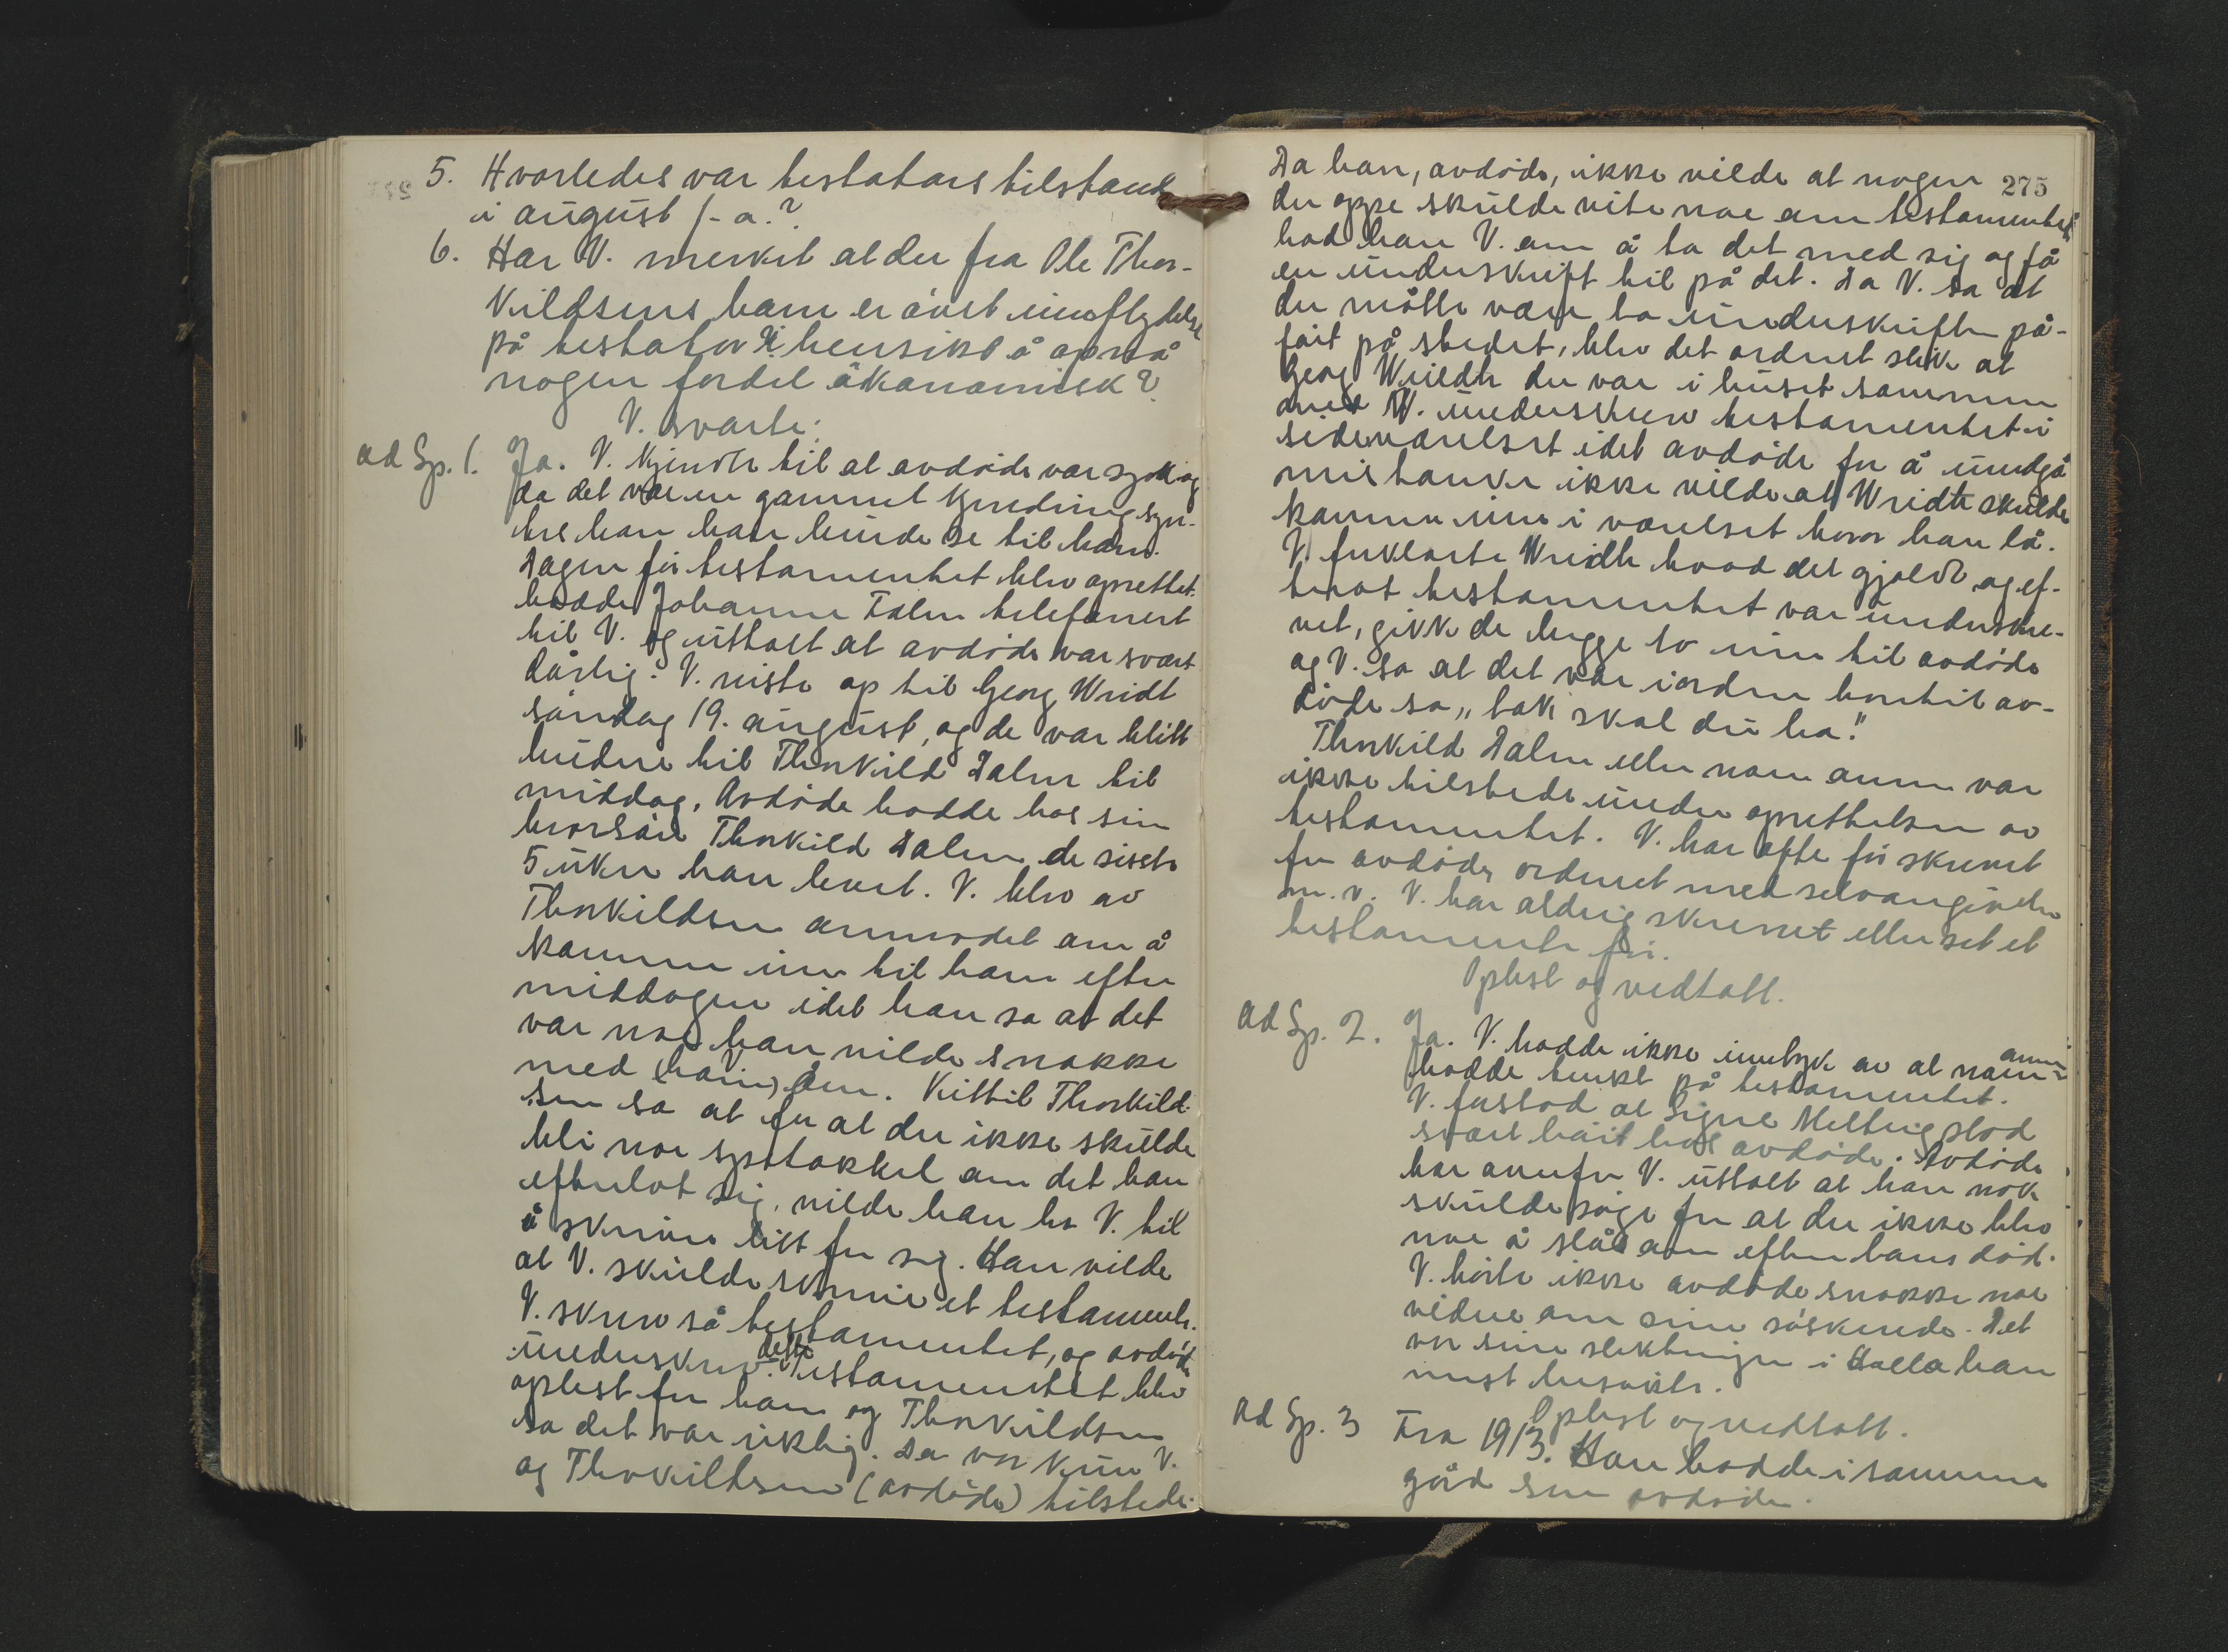 5. Hvorledes var testators tilstand
i august f.a.?
6. Har V. merket at der fra Ole Thor-
kildsens barn er øvet innflydelse
på testator i hensikt å opnå
nogen fordel økonomisk?
V. svarte:
ad Sp. 1. Ja. V. kjendte til at avdøde var syk og
da det var en gammel kjending syn-
tes han han burde se til ham.
Dagen før testamentet blev oprettet
hadde Johanne Dalen telefonert
til V. og uttalt at avdøde var svært
dårlig. V. reiste op til Georg Wridt
søndag 19. august, og de var blitt
budne til Thorkild Dalen til
middag. Avdøde bodde hos sin
brorsøn Thorkild Dalen de siste
5 uker han levet. V. blev av
Thorkildsen anmodet om å
komme inn til ham efter
middagen idet han sa at det
var noe han vilde snakke
med (ham) om. Kittil Thorkild-
sen sa at for at der ikke skulde
bli noe spetakkel om det han
efterlot sig, vilde han ha V. til
å skrive litt for sig. Han vilde
at V. skulde skrive et testamente.
V. skrev så testamentet, og avdøde
underskrev dette. Testamentet blev
oplest for ham og Thorkildsen
sa det var riktig. Da var kun V.
og Thorkildsen (avdøde) tilstede.
275
Da han, avdøde, ikke vilde at nogen
der oppe skulde vite noe om testamentet,
bad han V. om å ta det med sig og få
en underskrift til på det. Da V. sa at
der måtte være to underskrifter på-
ført på stedet, blev det ordnet slik at
Georg Wridt der var i huset sammen
med V. underskrev testamentet i
sideværelset idet avdøde for å undgå
mistanke ikke vilde at Wridt skulde
komme inn i værelset hvor han lå.
V. forklarte Wridt hvad det gjaldt og ef-
terat testamentet var underskre-
vet, gikk de begge to inn til avdøde
og V. sa at det var iorden hvortil av-
døde sa „takk skal du ha!"
Thorkild Dalen eller noen annen var
ikke tilstede under oprettelsen av
testamentet. V. har ofte før skrevet
for avdøde, ordnet med selvangivelse
m.v. V. har aldrig skrevet eller set et
testamente før.
Oplest og vedtatt.
ad Sp. 2. Ja. V. hadde ikke inntrykk av at noen annen
hadde tenkt på testamentet.
V. forstod at Signe Meltvig stod
svært høit hos avdøde. Avdøde
har overfor V. uttalt at han nok
skulde sørge for at der ikke blev
noe å slås om efter hans død.
V. hørte ikke avdøde snakke noe
videre om sine søskende. Det
var sine slektninger i Holla han
mest besøkte.
Oplest og vedtatt.
Ad Sp. 3 Fra 1913. Han bodde i samme
gård som avdøde.